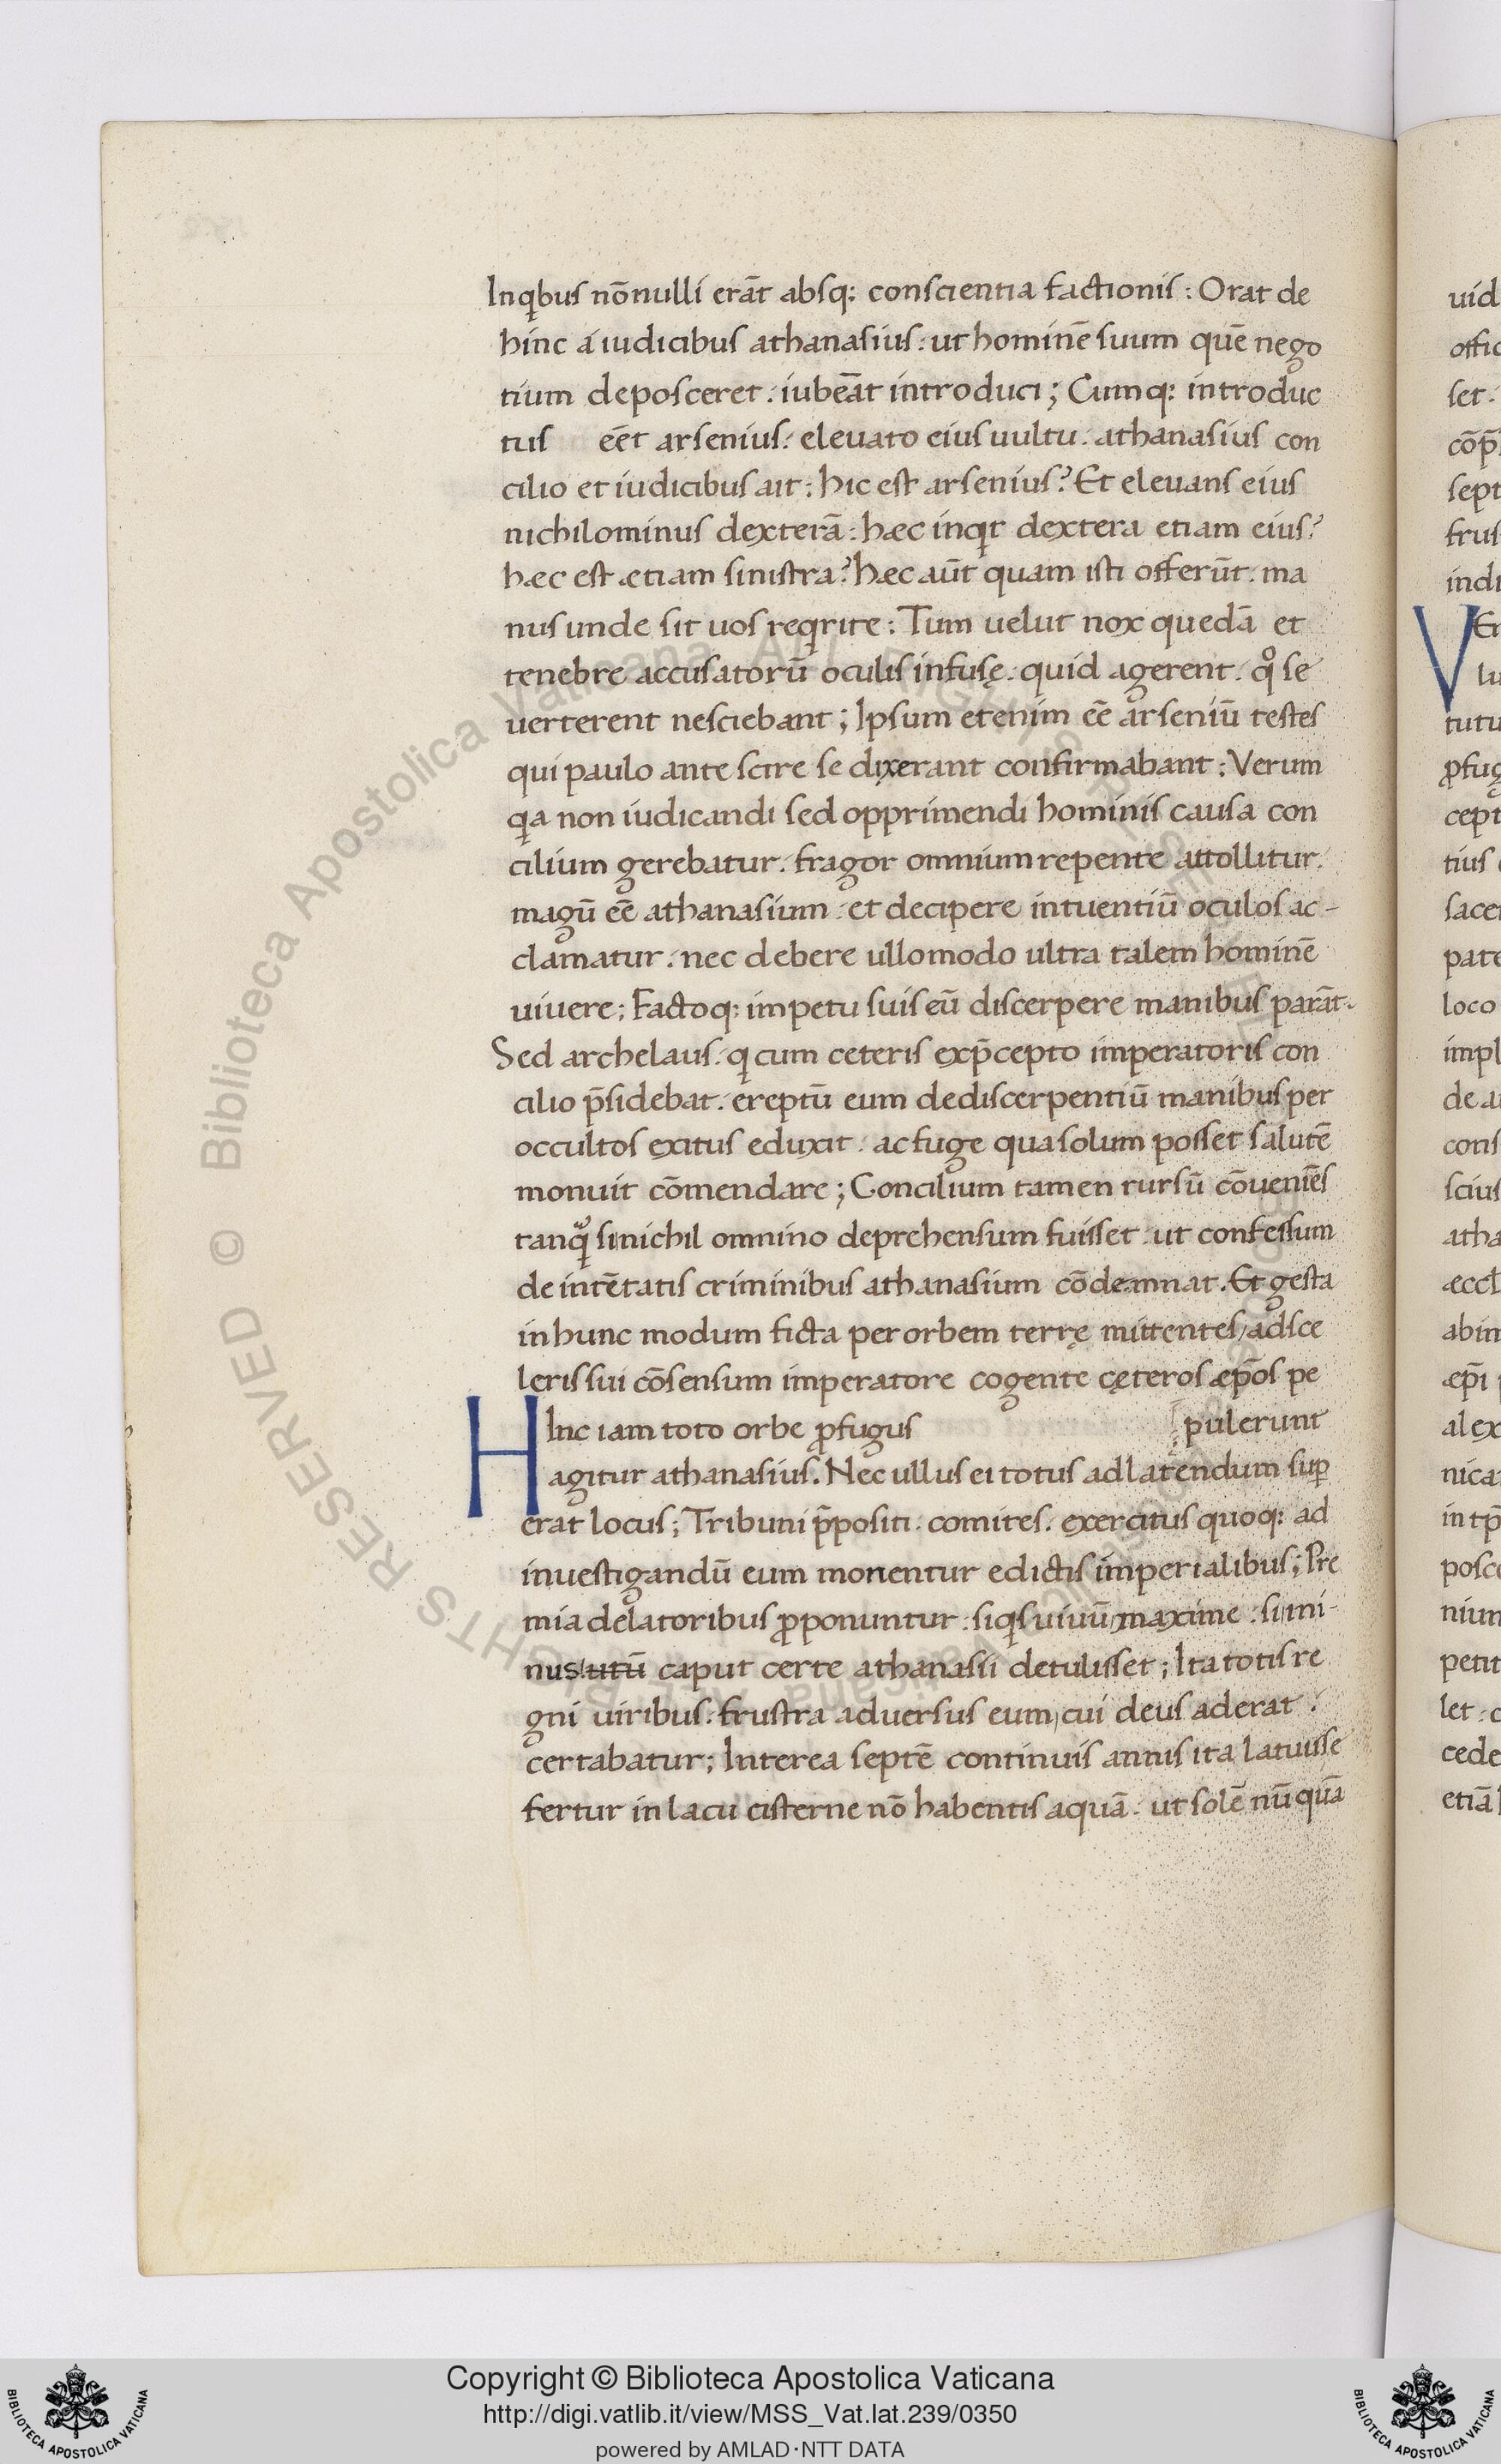 Inqibus nōnulli erāt absq; conscientia factionis: Orat de
hinc á iudicibus athanasius. ut hominē suum quē nego
tium deposceret. iubeāt introduci; Cumq; introduc
tus eēt arsenius. eleuato eius uultu. athanasius con
cilio et iudicibus ait: hic est arsenius? Et eleuans eius
nichilominus dexterā: hæc inqit dextera etiam eius?
hæc est ætiam sinistra? hæc aūt quam isti offerūt. ma
nus unde sit uos reqirite: Tum uelut nox quedā et
tenebre accusatorū oculis infusę. quid agerent. qͦ se
uerterent nesciebant; Ipsum etenim eē arseniū testes
qui paulo ante scire se dixerant confirmabant: Verum
qia non iudicandi sed opprimendi hominis causa con
cilium gerebatur. fragor omnium repente attollitur.
magū eē athanasium. et decipere intuentiū oculos ac-
clamatur. nec debere ullomodo ultra talem hominē
uiuere; Factoq; impetu suis eū discerpere manibus parāt.
Sed archelaus. qi cum ceteris exp̄cepto imperatoris con
cilio p̄sidebat. ereptū eum dediscerpentiū manibus per
occultos exitus eduxit. ac fuge qua solum posset salutē
monuit cōmendare; Concilium tamen rursū cōueniēs
tanqͣ si nichil omnino deprehensum fuisset. ut confessum
de intētatis criminibus athanasium cōdemnat. Et gesta
in hunc modum ficta per orbem terrę mittentes, adsce
leris sui cōsensum imperatore cogente cęteros æp̄os pe
pulerunt
HInc iam toto orbe ꝓfugus
agitur athanasius. Nec ullus ei totus ad latendum suꝑ
erat locus; Tribuni p̄positi. comites. exercitus quoq; ad
inuestigandū eum monentur edictis imperialibus; Pre
mia delatoribus ꝓponuntur. siqis uiuū maxime. si mi-
nus utū caput certe athanasii detulisset; Ita totis re
gni uiribus. frustra aduersus eum, cui deus aderat.
certabatur; Interea septē continuis annis ita latuisse
fertur in lacu cisterne nō habentis aquā. ut solē nūquā
Copyright © Biblioteca Apostolica Vaticana
http://digi.vatlib.it/view/MSS_Vat.lat.239/0350
powered by AMLAD·NTT DATA